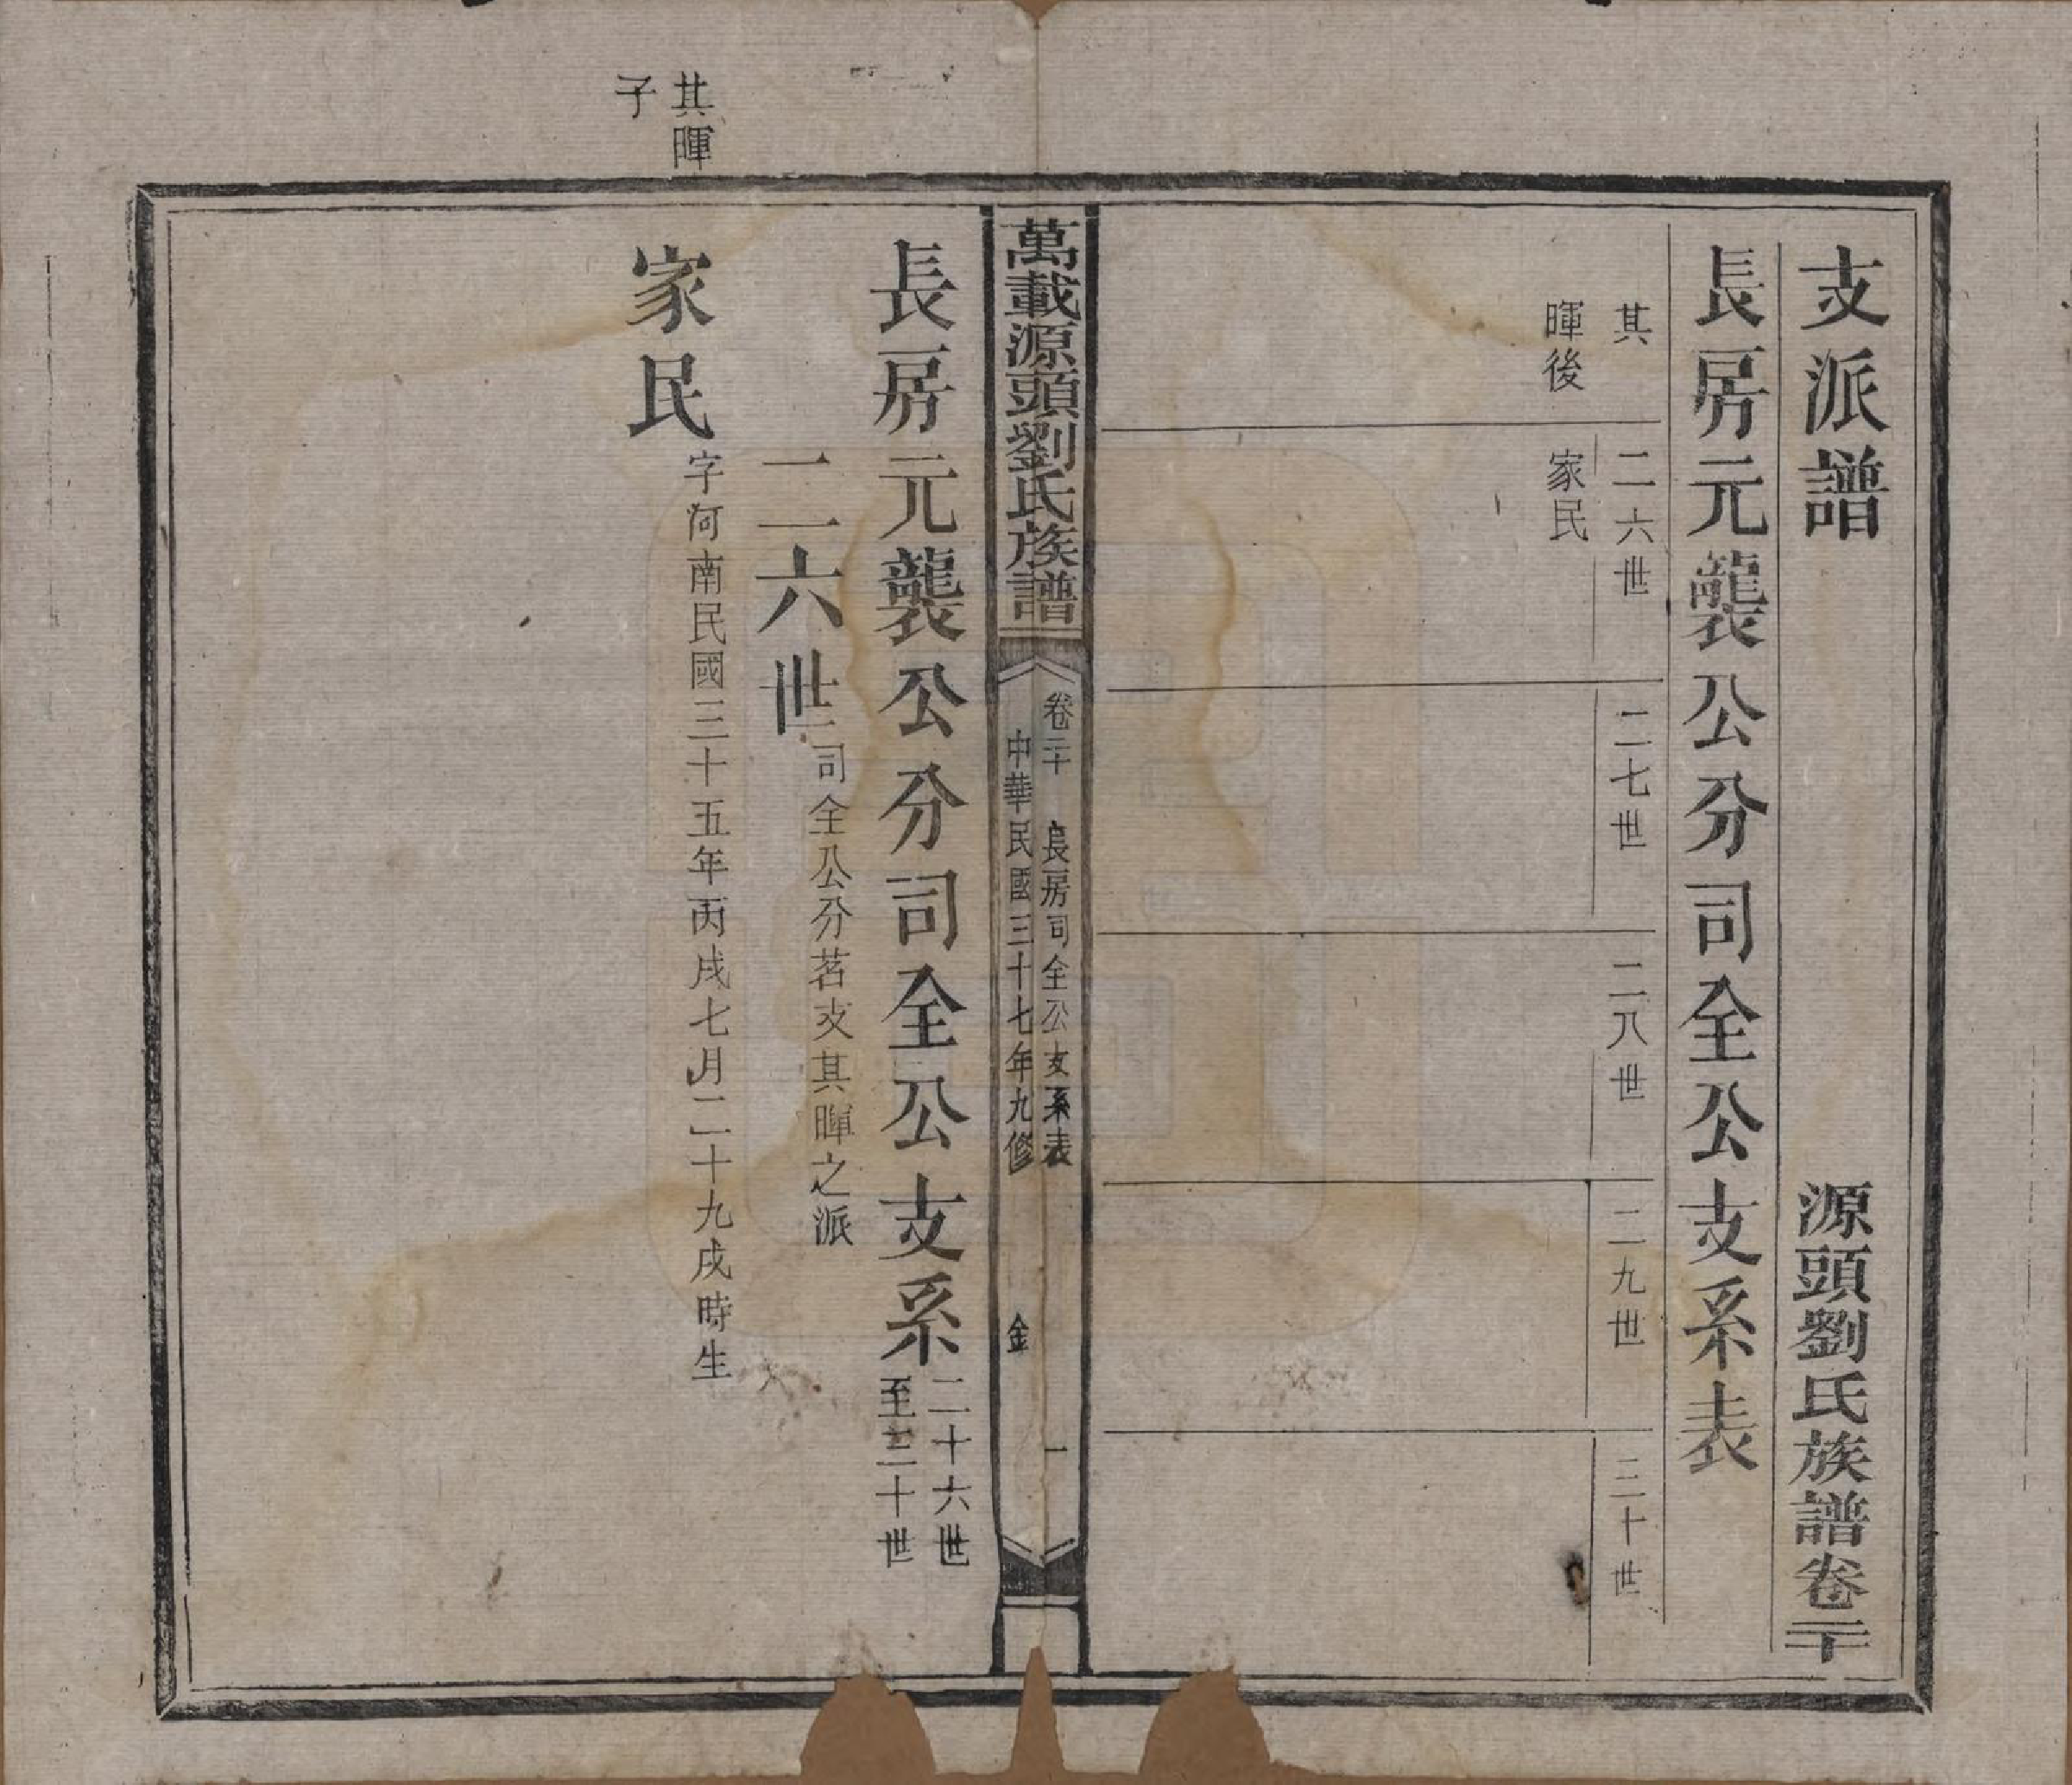 支派譜
源頭劉氏族譜卷二十
長房元襲公分司全公支系表
其
暉後
二六世
家民
二七世
二八世
二九世
三十世
萬載源頭劉氏族譜
卷二十 長房司全公支系表 一
中華民國三十七年九修 金
長房元襲公分司全公支系
二十六世
至三十世
二六世
司全公分茗支其暉之派
其暉
子
家民
字河南民國三十五年丙戌七月二十九戌時生